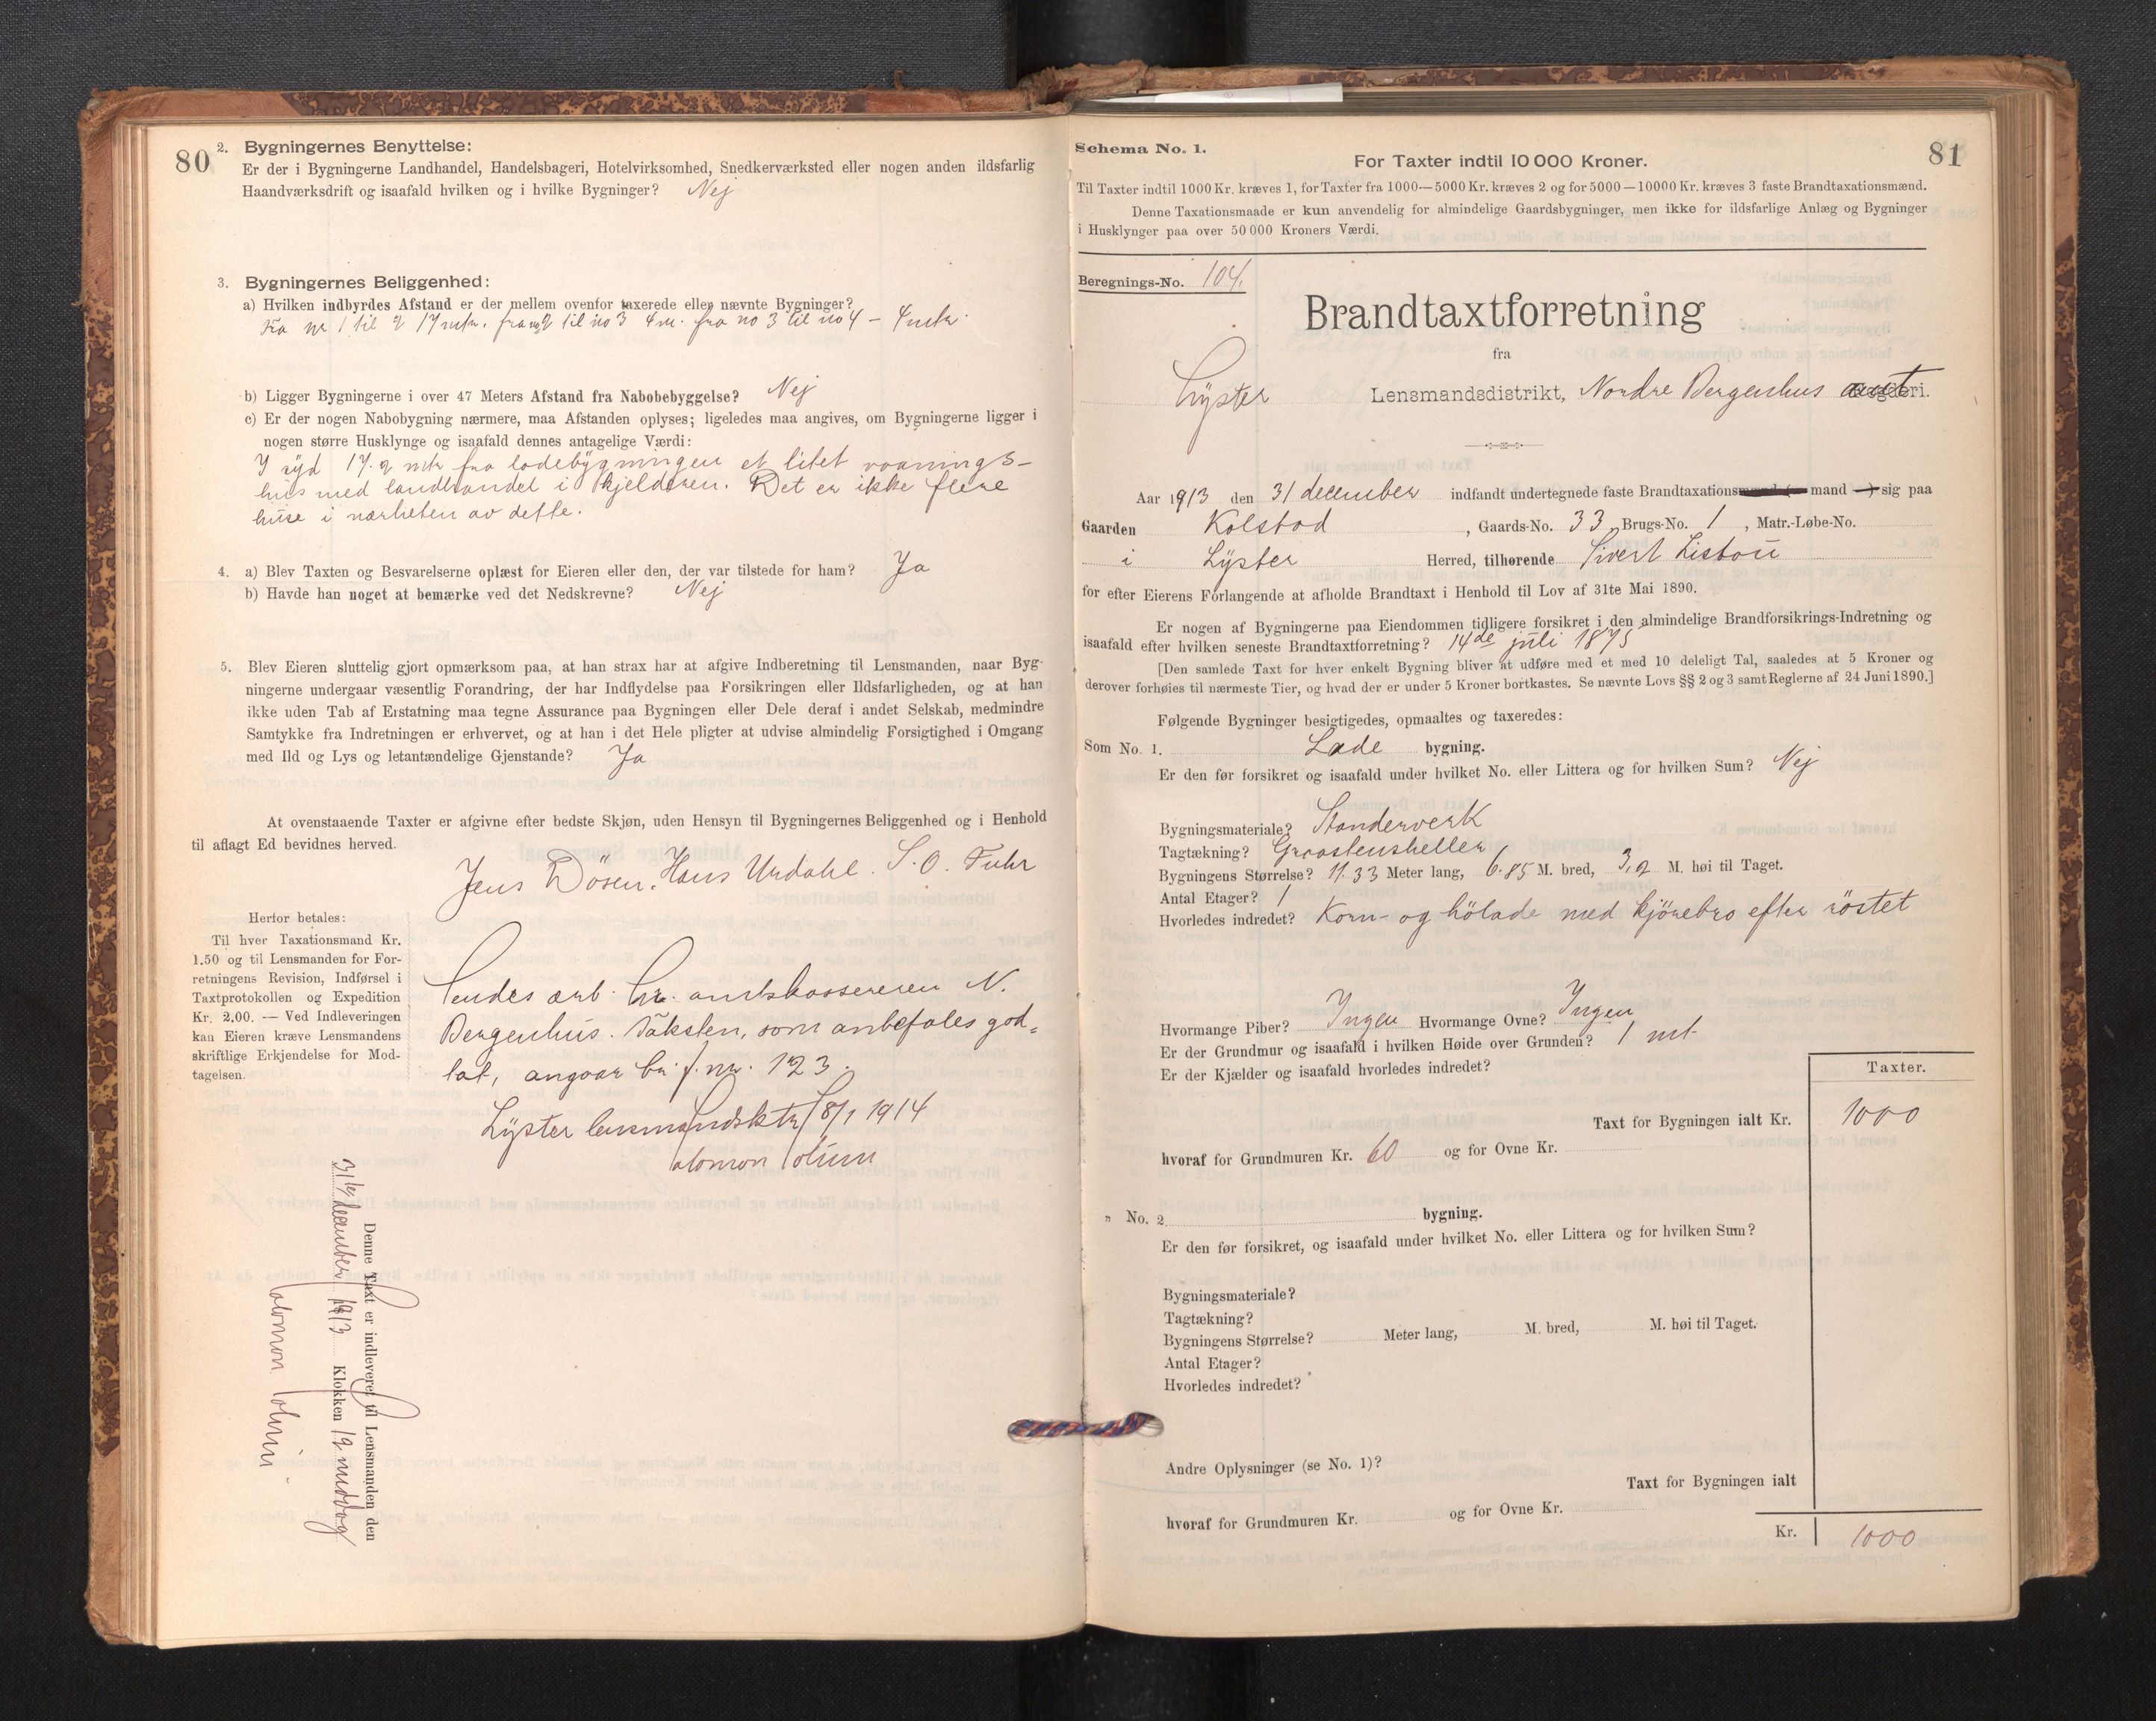 80
2. Bygningernes Benyttelse:
Er der i Bygningerne Landhandel, Handelsbageri, Hotelvirksomhed, Snedkerværksted eller nogen anden ildsfarlig
Haandværksdrift og isaafald hvilken og i hvilke Bygninger? Nej
3. Bygningernes Beliggenhed:
a) Hvilken indbyrdes Afstand er der mellem ovenfor taxerede eller nævnte Bygninger?
fra nr 1 til 2 17 mtr. fra no 2 til no 3 4 m. fra no 3 til no 4 – 4 mtr.
b) Ligger Bygningerne i over 47 Meters Afstand fra Nabobebyggelse? Nej
c) Er der nogen Nabobygning nærmere, maa Afstanden oplyses; ligeledes maa angives, om Bygningerne ligger i
nogen større Husklynge og isaafald dennes antagelige Værdi:
I syd 17.2 mtr fra ladebygningen et litet vaanings-
hus med landhandel i kjelderen. Det er ikke flere
huse i nærheten av dette.
4. a) Blev Taxten og Besvarelserne oplæst for Eieren eller den, der var tilstede for ham? Ja
b) Havde han noget at bemærke ved det Nedskrevne? Nej
5. Blev Eieren sluttelig gjort opmærksom paa, at han strax har at afgive Indberetning til Lensmanden, naar Byg-
ningerne undergaar væsentlig Forandring, der har Indflydelse paa Forsikringen eller Ildsfarligheden, og at han
ikke uden Tab af Erstatning maa tegne Assurance paa Bygningen eller Dele deraf i andet Selskab, medmindre
Samtykke fra Indretningen er erhvervet, og at han i det Hele pligter at udvise almindelig Forsigtighed i Omgang
med Ild og Lys og letantændelige Gjenstande? Ja
At ovenstaaende Taxter er afgivne efter bedste Skjøn, uden Hensyn til Bygningernes Beliggenhed og i Henhold
til aflagt Ed bevidnes herved.
Jens Dösen. Hans Urdahl. S. O. Fuhr
Herfor betales:
Til hver Taxationsmand Kr.
1.50 og til Lensmanden for For-
retningens Revision, Indførsel i
Taxtprotokollen og Expedition
Kr. 2.00. — Ved Indleveringen
kan Eieren kræve Lensmandens
skriftlige Erkjendelse for Mod-
tagelsen.
Sendes ærb. hr. amtskassereren N.
Bergenhus. Taksten, som anbefales god-
tat, angaar br.f.nr. 123.
Lyster lensmandsktr 8/1 1914
Salomon Solum
Denne Taxt er indleveret til Lensmanden den
31te december 1913 Klokken 12 middag
Salomon Solum
81
Schema No. 1.
For Taxter indtil 10 000 Kroner.
Til Taxter indtil 1000 Kr. kræves 1, for Taxter fra 1000—5000 Kr. kræves 2 og for 5000—10000 Kr. kræves 3 faste Brandtaxationsmænd.
Denne Taxationsmaade er kun anvendelig for almindelige Gaardsbygninger, men ikke for ildsfarlige Anlæg og Bygninger
i Husklynger paa over 50 000 Kroners Værdi.
Beregnings-No. 104.
Brandtaxtforretning
fra
Lyster Lensmandsdistrikt, Nordre Bergenhus amt
Aar 1913 den 31 december indfandt undertegnede faste Brandtaxations mand sig paa
Gaarden Kolstad, Gaards-No. 33, Brugs-No. 1, Matr.-Løbe-No.
i Lyster Herred, tilhørende Sivert Listou
for efter Eierens Forlangende at afholde Brandtaxt i Henhold til Lov af 31te Mai 1890.
Er nogen af Bygningerne paa Eiendommen tidligere forsikret i den almindelige Brandforsikrings-Indretning og
isaafald efter hvilken seneste Brandtaxtforretning? 14de juli 1875
[Den samlede Taxt for hver enkelt Bygning bliver at udføre med et med 10 deleligt Tal, saaledes at 5 Kroner og
derover forhøies til nærmeste Tier, og hvad der er under 5 Kroner bortkastes. Se nævnte Lovs §§ 2 og 3 samt Reglerne af 24 Juni 1890.]
Følgende Bygninger besigtigedes, opmaaltes og taxeredes:
Som No. 1. Lade bygning.
Er den før forsikret og isaafald under hvilket No. eller Littera og for hvilken Sum? Nej
Bygningsmateriale? Standerverk
Tagtækning? Graastensheller
Bygningens Størrelse? 11.33 Meter lang, 6.85 M. bred, 3,2 M. høi til Taget.
Antal Etager? 1
Hvorledes indredet? Korn- og hölade med kjörebro efter röstet
Hvormange Piber? Ingen Hvormange Ovne? Ingen
Er der Grundmur og isaafald i hvilken Høide over Grunden? 1 mt
Er der Kjælder og isaafald hvorledes indredet?
Taxter.
Taxt for Bygningen ialt Kr. 1000
hvoraf for Grundmuren Kr. 60 og for Ovne Kr.
„ No. 2 bygning.
Er den før forsikret, og isaafald under hvilket No. eller Littera og for hvilken Sum?
Bygningsmateriale?
Tagtækning?
Bygningens Størrelse? Meter lang, M. bred, M. høi til Taget.
Antal Etager?
Hvorledes indredet?
Andre Oplysninger (se No. 1)?
Taxt for Bygningen ialt
hvoraf for Grundmuren Kr. og for Ovne Kr.
Kr. 1000